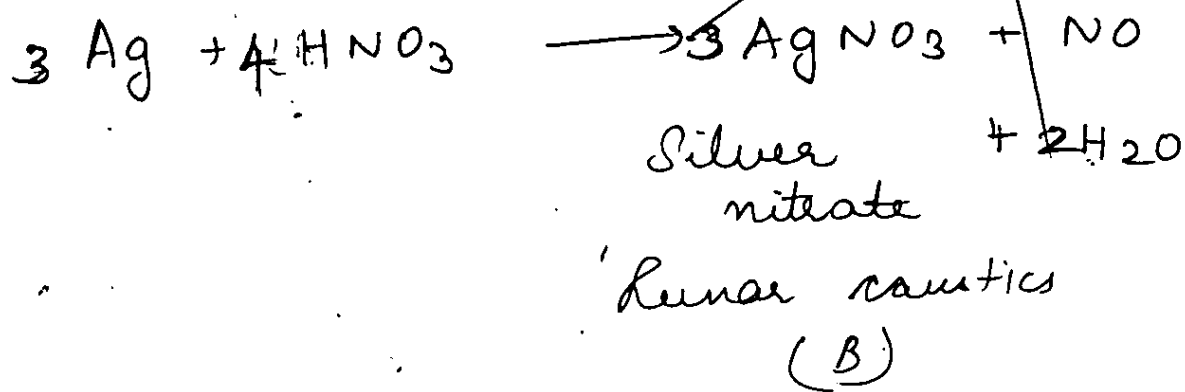 3 Ag + 4 HNO3 → 3 AgNO3 + NO
+ 2H2O
Silver
nitrate
'Lunar caustics
(B)